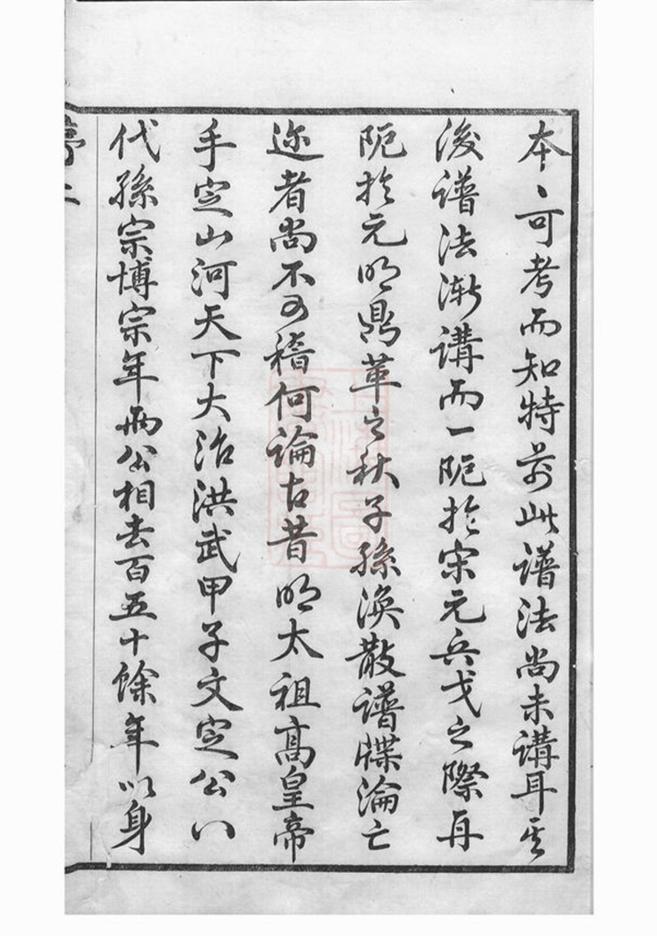 本〻可考而知特前此譜法尚未講耳其
後譜法漸講而一阨於宋元兵戈之際再
阨於元明鼎革之秋子孫渙散譜牒淪亡
迩者尚不可稽何論古昔明太祖高皇帝
手定山河天下大治洪武甲子文定公八
代孫宗博宗年兩公相去百五十餘年以身